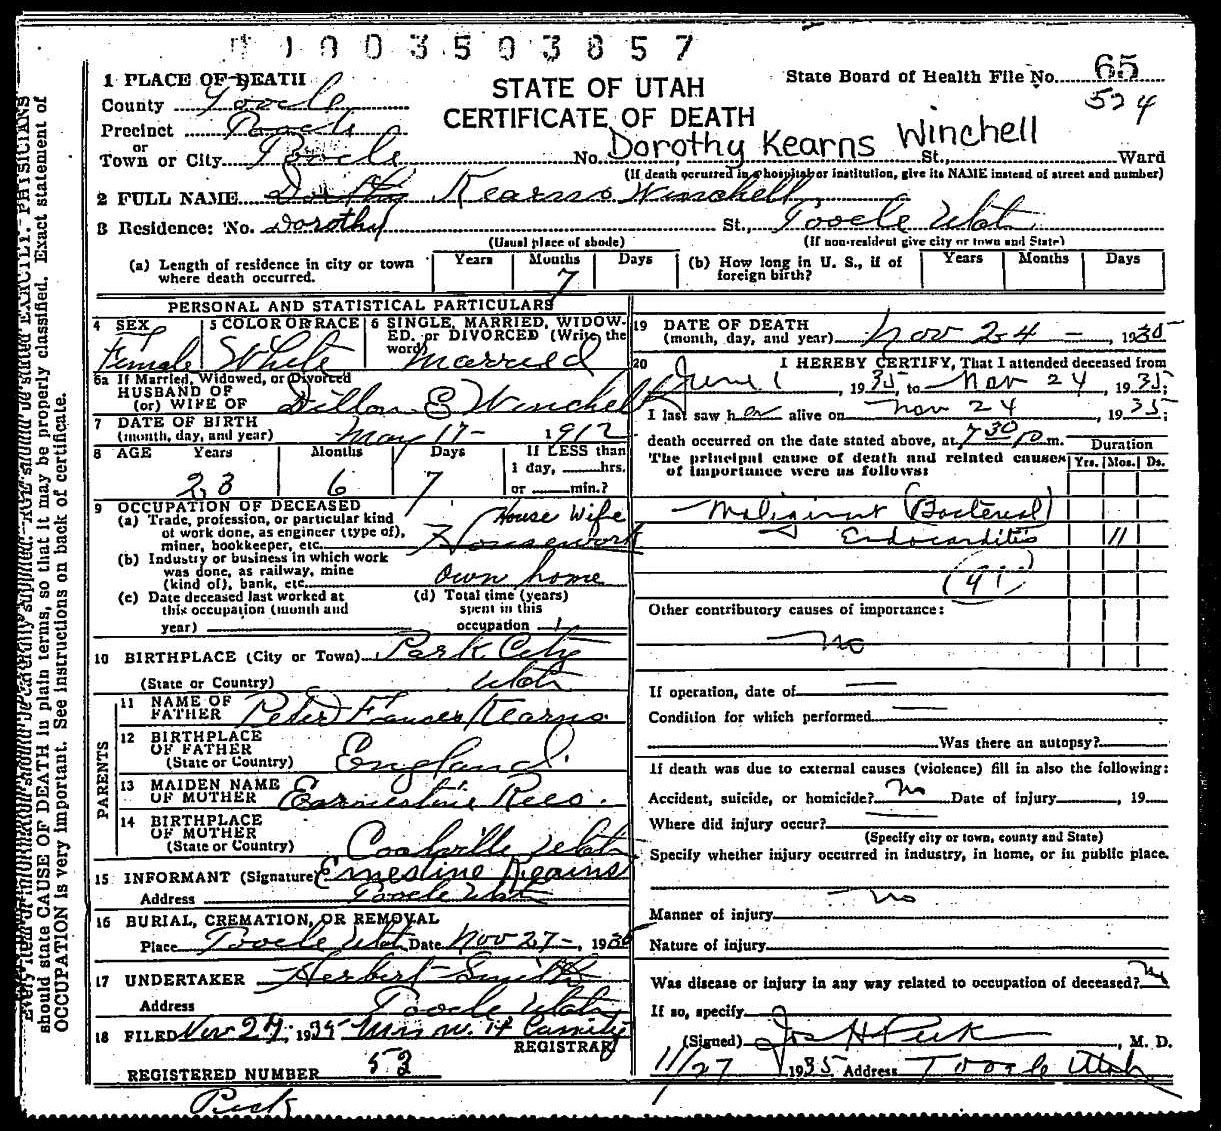 1003503857
1 PLACE OF DEATH
STATE OF UTAH
CERTIFICATE OF DEATH
State Board of Health File No. 65
524
County Tooele
Precinct Tooele
or
Town or City Tooele No. Dorothy Kearns Winchell St., Ward
(If death occurred in a hospital or institution, give its NAME instead of street and number)
2 FULL NAME Dorothy Kearns Winchell
3 Residence: No. Dorothy St., Tooele Utah
(Usual place of abode) (If non-resident give city or town and State)
(a) Length of residence in city or town where death occurred. Years Months 7 Days
(b) How long in U. S., if of foreign birth? Years Months Days
PERSONAL AND STATISTICAL PARTICULARS
4 SEX Female
5 COLOR OR RACE White
6 SINGLE, MARRIED, WIDOWED, or DIVORCED (Write the word) Married
6a If Married, Widowed, or Divorced
HUSBAND OF
(or) WIFE OF Dillon E Winchell
7 DATE OF BIRTH
(month, day, and year) May 17- 1912
8 AGE Years 23 Months 6 Days 7 If LESS than
1 day, hrs.
or min.?
9 OCCUPATION OF DECEASED
(a) Trade, profession, or particular kind of work done, as engineer (type of), miner, bookkeeper, etc. House Wife Housework
(b) Industry or business in which work was done, as railway, mine (kind of), bank, etc. Own home
(c) Date deceased last worked at this occupation (month and year)
(d) Total time (years) spent in this occupation 1
10 BIRTHPLACE (City or Town) Park City
(State or Country) Utah
PARENTS
11 NAME OF FATHER Peter Kearns
12 BIRTHPLACE OF FATHER
(State or Country) England
13 MAIDEN NAME OF MOTHER Earnestine Rees.
14 BIRTHPLACE OF MOTHER
(State or Country) Coalville Utah
15 INFORMANT (Signature) Ernestine Kearns
Address Tooele Utah
16 BURIAL, CREMATION, OR REMOVAL
Place Tooele Utah Date Nov 27-, 1935
17 UNDERTAKER Herbert Smith
Address Tooele Utah
18 FILED Nov 27, 1935 Mrs W. H.
REGISTRAR
REGISTERED NUMBER 53
Peck
19 DATE OF DEATH
(month, day, and year) Nov 24-, 1935
20 I HEREBY CERTIFY, That I attended deceased from
June 1, 1935, to Nov 24, 1935;
I last saw her alive on Nov 24, 1935;
death occurred on the date stated above, at 7 30 p m.
The principal cause of death and related causes of importance were as follows:
Duration
Yrs. Mos. Ds.
Malignant (Bacterial)
Endocarditis 11
(91)
Other contributory causes of importance:
No
If operation, date of
Condition for which performed
Was there an autopsy?
If death was due to external causes (violence) fill in also the following:
Accident, suicide, or homicide? No Date of injury, 19
Where did injury occur?
(Specify city or town, county and State)
Specify whether injury occurred in industry, in home, or in public place.
No
Manner of injury
Nature of injury
Was disease or injury in any way related to occupation of deceased? No
If so, specify
(Signed) Jos H Peck, M. D.
11/27 1935 Address Tooele Utah
should state CAUSE OF DEATH in plain terms, so that it may be properly classified. Exact statement of
OCCUPATION is very important. See instructions on back of certificate.